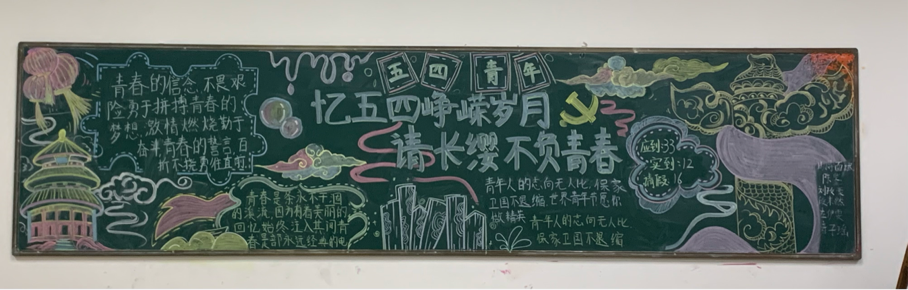 五四青年
忆五四峥嵘岁月
请长缨不负青春
青春的信念不畏艰
险勇于拼搏青春的
梦想激情燃烧勤于
青春的誓言百
折不挠勇往直前
青春是条永不干回
的溪流因为有着美丽的
回忆始终注入其间青
青年人的志向无人比保家
卫国不退缩世界青年节愿你
做精英
青年人的志向无人比
保家卫国不退缩
应到:33
实到:12